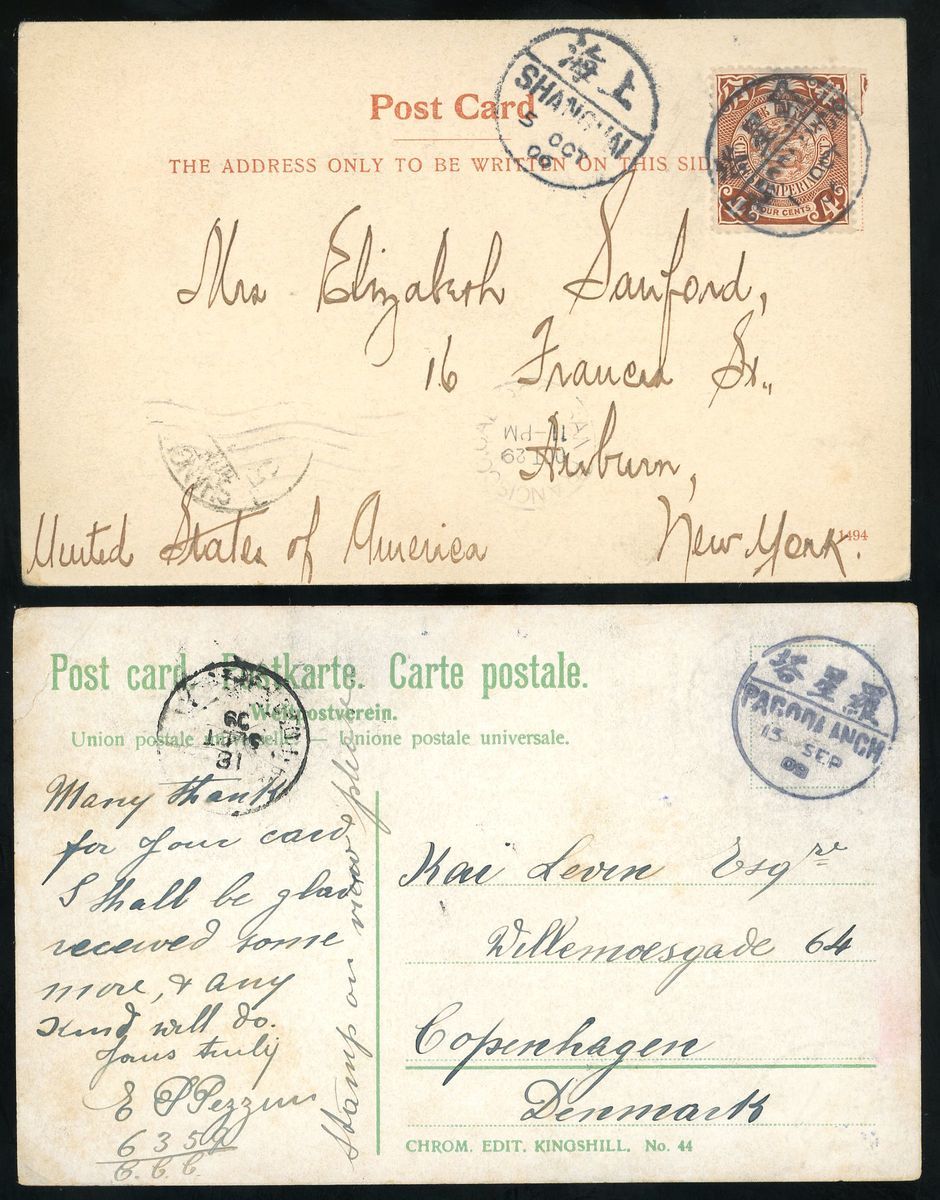 Post Card
THE ADDRESS ONLY TO BE WRITTEN ON THIS SIDE
海上
SHANGHAI
5 OCT
09
FOUR CENTS
Mrs Elizabeth Sanford,
16 Francis St.,
Auburn,
New York.
United States of America
OCT 29
11-PM
1494
Post card. Postkarte. Carte postale.
Weltpostverein.
Union postale universelle — Unione postale universale.
塔星羅
PAGODA ANCH
13 SEP
09
Many thanks
for your card
I shall be glad
received some
more, & any
kind will do.
Yours truly
6359
C. C. C.
Stamp on view please
Kai Leven Esqre
Willemoesgade 64
Copenhagen
Denmark
CHROM. EDIT. KINGSHILL. No. 44